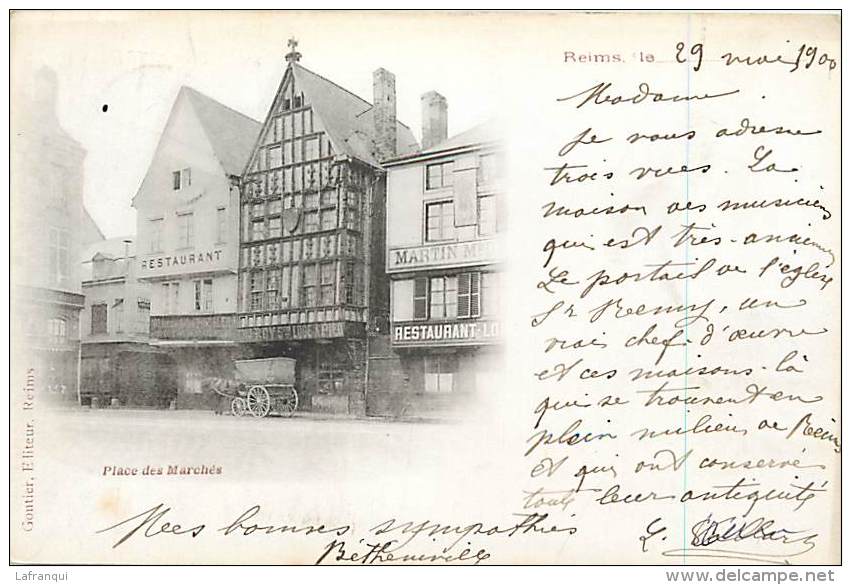 Reims, le 29 mai 1900
Madame.
Je vous adresse
trois vues. La
maison des musiciens
qui est très-ancienne,
Le portail de l'église
St Remy, un
vrai chef-d'œuvre
et ces maisons-là
qui se trouvent en
plein milieu de Reims
et qui ont conservé
toute leur antiquité
RESTAURANT
MARTIN
RESTAURANT-
Place des Marchés
Gontier, Editeur, Reims
Mes bonnes sympathies
Bétheniville
L.
LaFranqui
www.delcampe.net